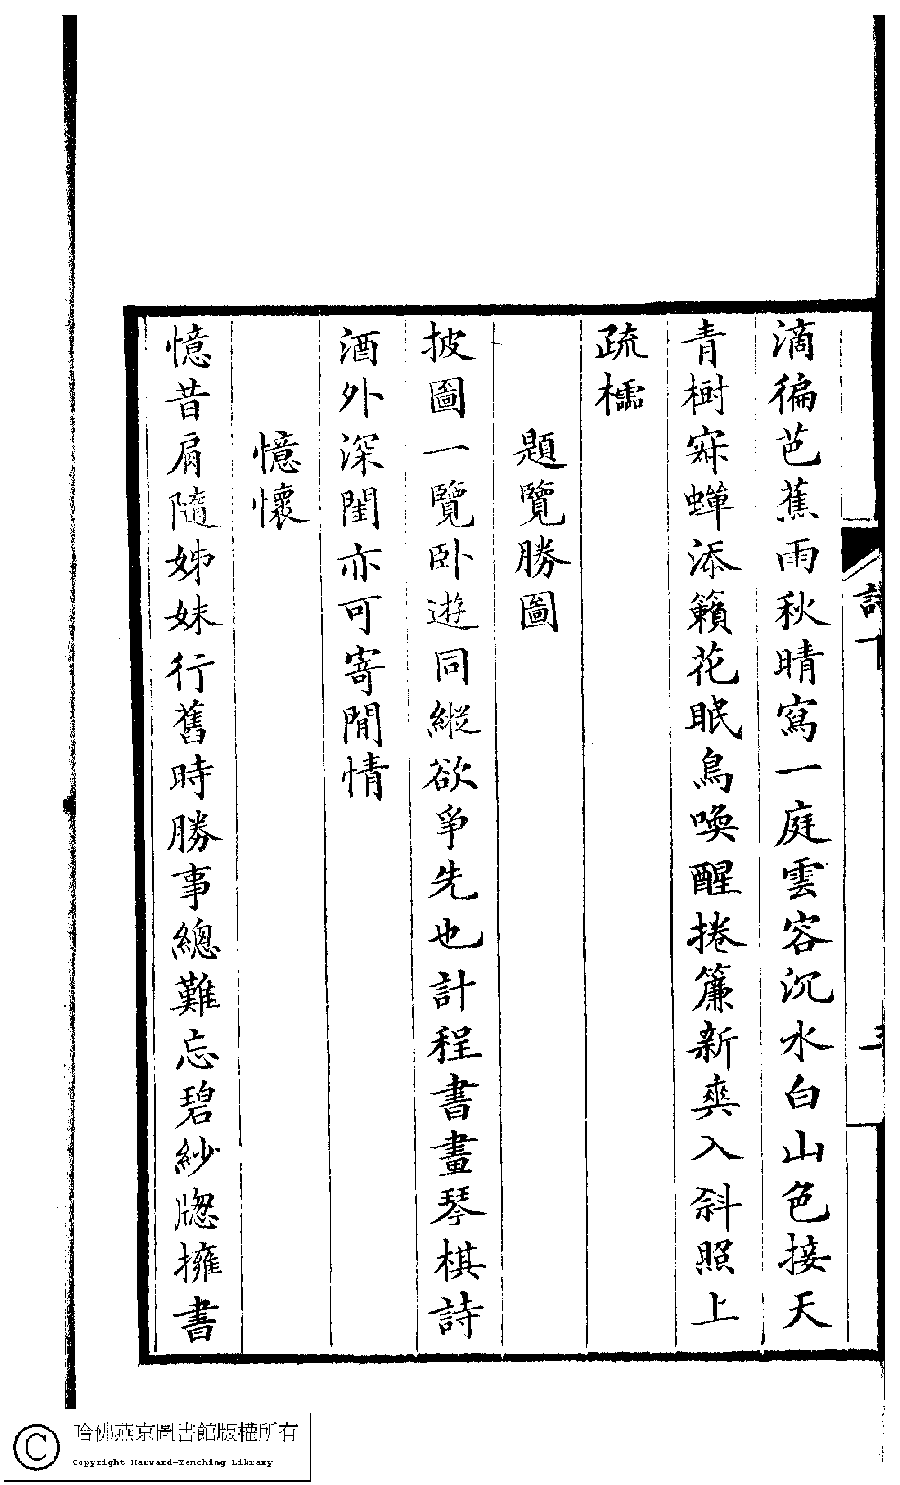 滴徧芭蕉雨秋晴寫一庭雲容沉水白山色接天
青樹寂蟬添籟花眠鳥喚醒捲簾新爽入斜照上
疏櫺
題覽勝圖
披圖一覽卧遊同縱欲爭先也計程書畫琴棋詩
酒外深閨亦可寄閒情
憶懷
憶昔肩隨姊妹行舊時勝事總難忘碧紗牕擁書
哈佛燕京圖書館版權所有
Copyright Harvard-Yenching Library